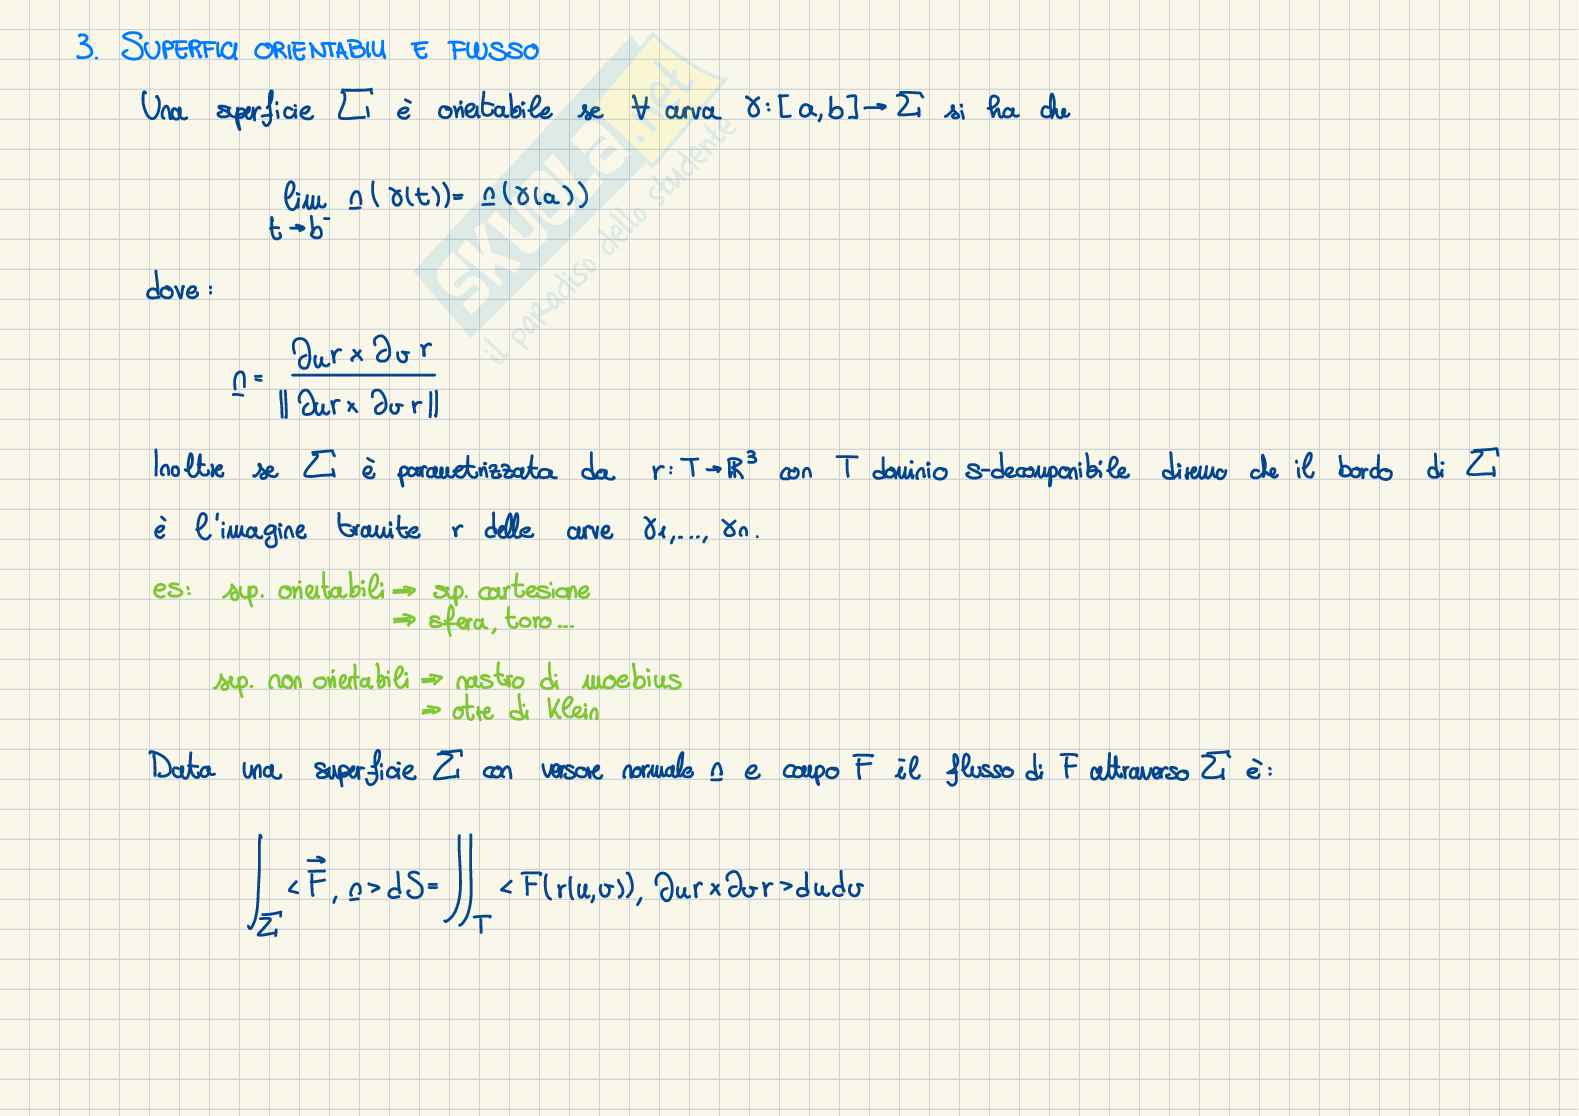 3. SUPERFICI ORIENTABILI E FLUSSO
Una superficie Σ è orientabile se ∀ curva γ: [a,b] → Σ si ha che
lim n(γ(t)) = n(γ(a))
t → b⁻
dove:
n = ∂u r × ∂v r / ‖∂u r × ∂v r‖
Inoltre se Σ è parametrizzata da r: T → ℝ³ con T dominio s-decomponibile diremo che il bordo di Σ
è l'imagine tramite r delle curve γ1,..., γn.
es: sup. orientabili → sup. cartesiane
→ sfera, toro...
sup. non orientabili → nastro di moebius
→ otre di Klein
Data una superficie Σ con versore normale n e campo F il flusso di F attraverso Σ è:
∫_Σ <F⃗, n> dS = ∬_T <F(r(u,v)), ∂u r × ∂v r> du dv
SKUOLA.net
il paradiso dello studente